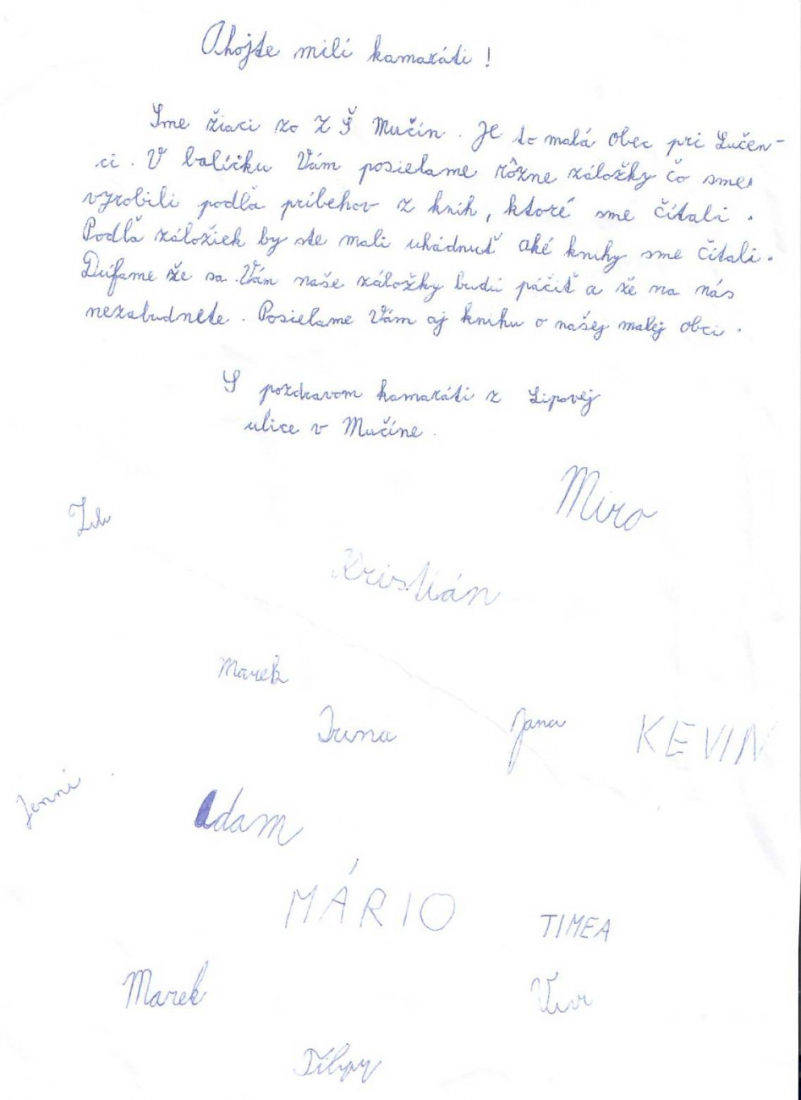 Ahojte milí kamaráti !
Sme žiaci zo Z Š Mučín . Je to malá obec pri Lučen-
ci . V balíčku Vám posielame rôzne záložky čo sme
vyrobili podľa príbehov z kníh , ktoré sme čítali .
Podľa záložiek by ste mali uhádnuť aké knihy sme čítali .
Dúfame že sa Vám naše záložky budú páčiť a že na nás
nezabudnete . Posielame Vám aj knihu o našej malej obci .
S pozdravom kamaráti z Lipovej
ulice v Mučíne .
Miro
Kristián
Marek
Jana KEVIN
Jenni
Adam
MÁRIO
TIMEA
Marek